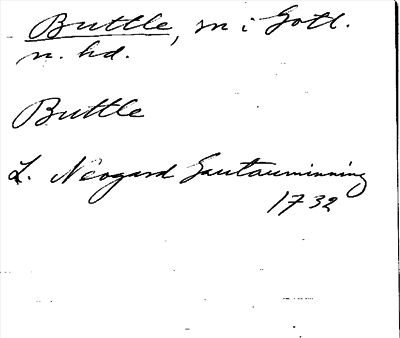 Buttle, sn i Gotl.
n. hd.
Buttle
L. Neogard Gautauminning
1732